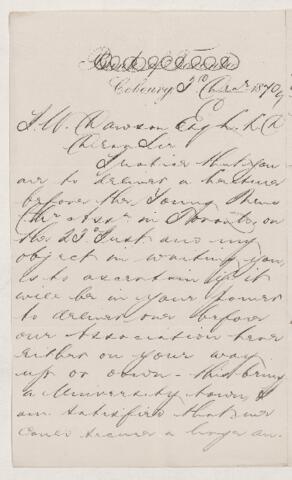 Bank of Toronto
Cobourg 3rd 1870
J. W. Dawson Esq L.L.D
Dear Sir
I notice that you
are to deliver a lecture
before the Young Mens
Chrn Assn in Toronto, on
the 23d Inst and my
object in writing you,
is to ascertain if it
will be in your power
to deliver one before
our Association here
either on your way
up or down - this being
a University town, I
am satisfied that we
could secure a large au-